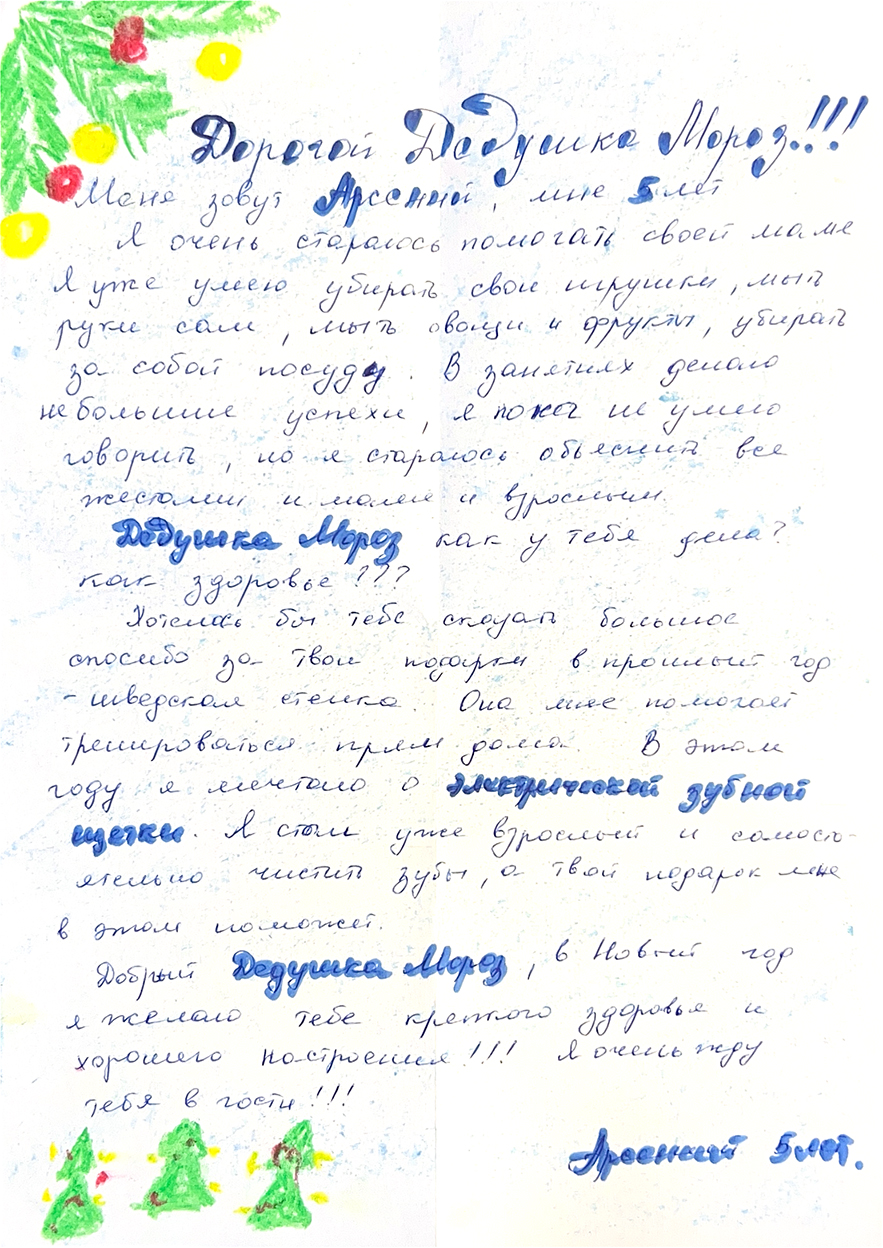 Дорогой Дедушка Мороз!!!
Меня зовут Арсений, мне 5 лет
Я очень стараюсь помогать своей маме
Я уже умею убирать свои игрушки, мыть
руки сам, мыть овощи и фрукты, убирать
за собой посуду. В занятиях делаю
небольшие успехи, я пока не умею
говорить, но я стараюсь объяснить все
жестами и маме и взрослым.
Дедушка Мороз как у тебя дела?
как здоровье???
Хотелось бы тебе сказать большое
спасибо за твои подарки в прошлый год
- шведская стенка. Она мне помогает
тренироваться прям дома. В этом
году я мечтаю о электрической зубной
щетки. Я стал уже взрослый и самосто-
ятельно чистить зубы, а твой подарок мне
в этом поможет.
Добрый Дедушка Мороз, в Новый год
я желаю тебе крепкого здоровья и
хорошего настроения!!! Я очень жду
тебя в гости!!!
Арсений 5 лет.